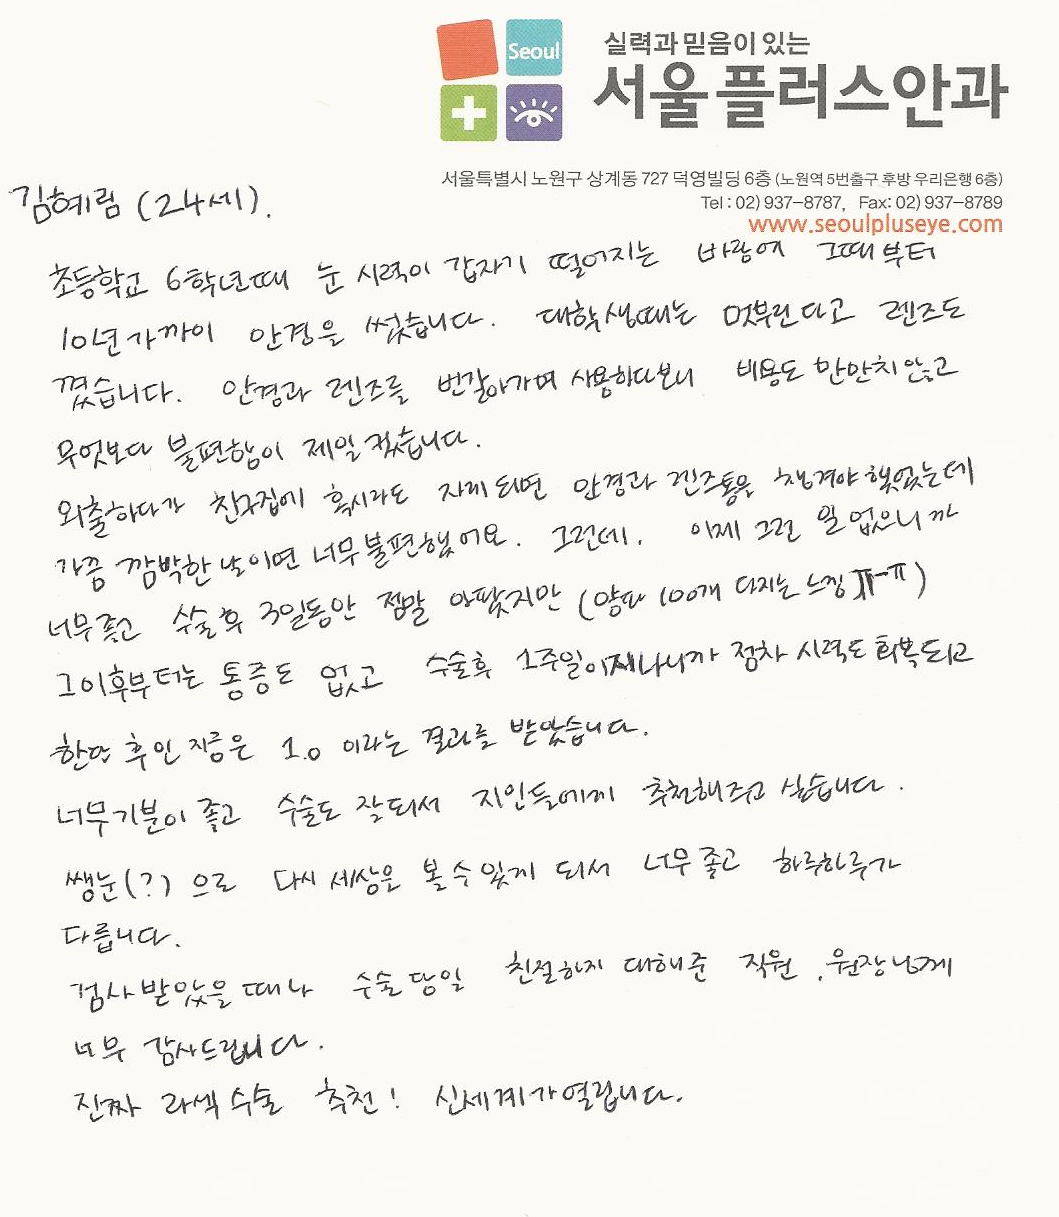 Seoul
실력과 믿음이 있는
서울플러스안과
서울특별시 노원구 상계동 727 덕영빌딩 6층 (노원역 5번출구 후방 우리은행 6층)
Tel : 02) 937-8787, Fax: 02) 937-8789
www.seoulpluseye.com
김혜림 (24세).
초등학교 6학년때 눈 시력이 갑자기 떨어지는 바람에 그때부터
10년가까이 안경을 썼습니다. 대학생때는 멋부린다고 렌즈도
꼈습니다. 안경과 렌즈를 번갈아가며 사용하다보니 비용도 만만치않고
무엇보다 불편함이 제일 컸습니다.
외출하다가 친구집에 혹시라도 자게되면 안경과 렌즈통을 챙겨야했었는데
가끔 깜박한 날이면 너무불편했어요. 그런데. 이제 그런 일 없으니까
너무좋고 수술후 3일동안 정말 아팠지만 (양파 100개 다지는 느낌 ㅠ-ㅠ)
그이후부터는 통증도 없고 수술후 1주일이지나니까 점차 시력도 회복되고
한달 후인 지금은 1.0 이라는 결과를 받았습니다.
너무기분이 좋고 수술도 잘되서 지인들에게 추천해주고 싶습니다.
쌩눈(?) 으로 다시 세상을 볼수있게 되서 너무좋고 하루하루가
다릅니다.
검사받았을때나 수술당일 친절하게 대해준 직원, 원장님께
너무 감사드립니다.
진짜 라섹수술 추천! 신세계가열립니다.